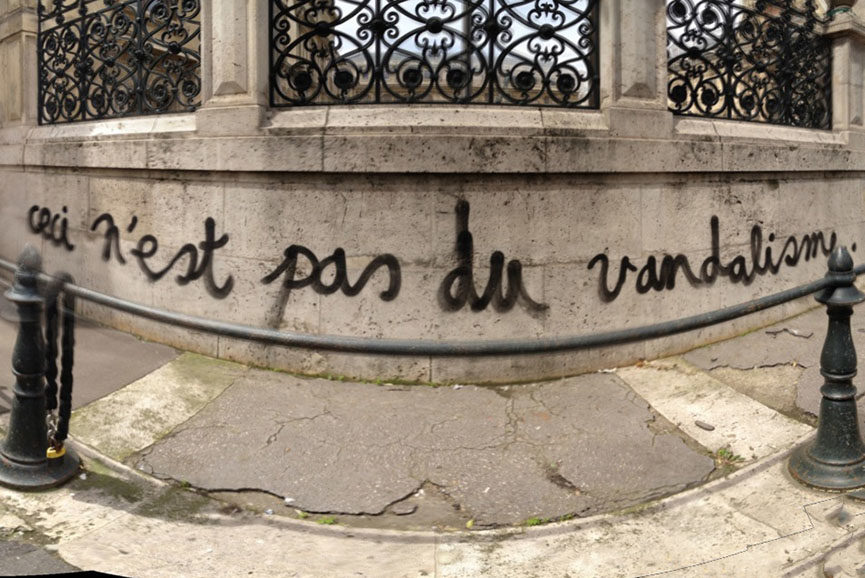 ceci n'est pas du vandalisme.